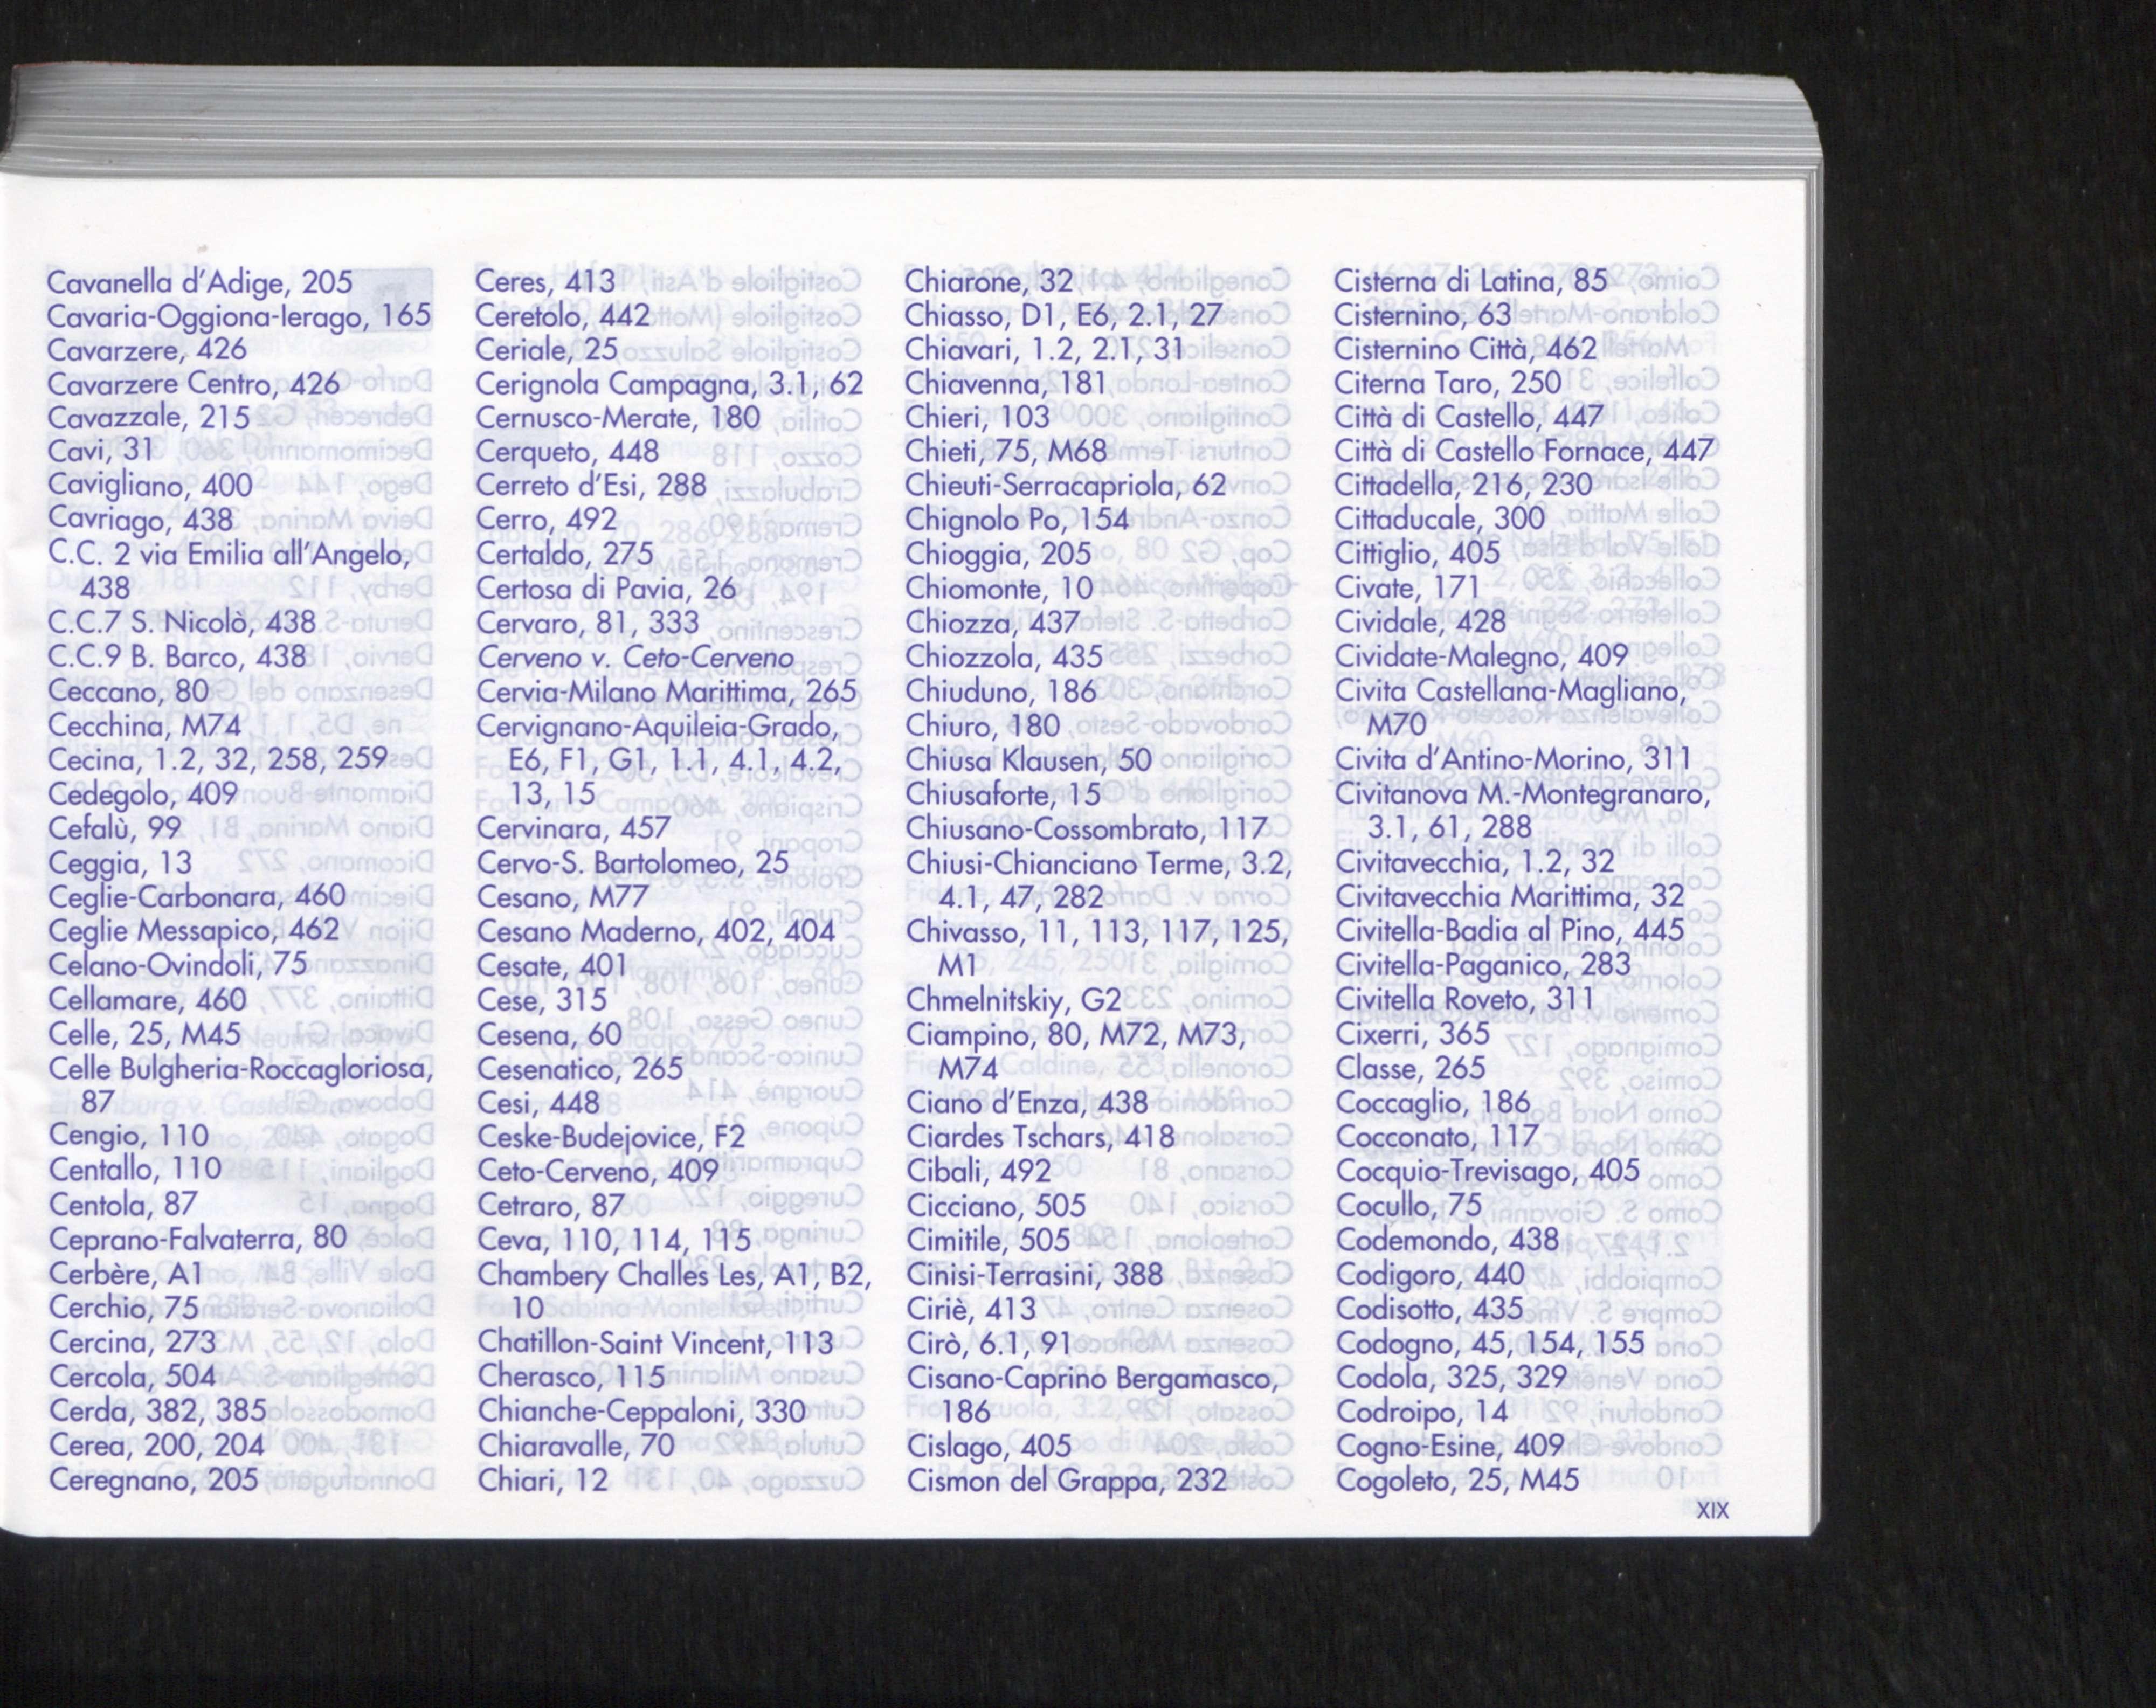 Cavanella d'Adige, 205
Cavaria-Oggiona-Ierago, 165
Cavarzere, 426
Cavarzere Centro, 426
Cavazzale, 215
Cavi, 31
Cavigliano, 400
Cavriago, 438
C.C. 2 via Emilia all'Angelo,
438
C.C.7 S. Nicolò, 438
C.C.9 B. Barco, 438
Ceccano, 80
Cecchina, M74
Cecina, 1.2, 32, 258, 259
Cedegolo, 409
Cefalù, 99
Ceggia, 13
Ceglie-Carbonara, 460
Ceglie Messapico, 462
Celano-Ovindoli, 75
Cellamare, 460
Celle, 25, M45
Celle Bulgheria-Roccagloriosa,
87
Cengio, 110
Centallo, 110
Centola, 87
Ceprano-Falvaterra, 80
Cerbère, A1
Cerchio, 75
Cercina, 273
Cercola, 504
Cerda, 382, 385
Cerea, 200, 204
Ceregnano, 205
Ceres, 413
Ceretolo, 442
Ceriale, 25
Cerignola Campagna, 3.1, 62
Cernusco-Merate, 180
Cerqueto, 448
Cerreto d'Esi, 288
Cerro, 492
Certaldo, 275
Certosa di Pavia, 26
Cervaro, 81, 333
Cerveno v. Ceto-Cerveno
Cervia-Milano Marittima, 265
Cervignano-Aquileia-Grado,
E6, F1, G1, 1.1, 4.1, 4.2,
13, 15
Cervinara, 457
Cervo-S. Bartolomeo, 25
Cesano, M77
Cesano Maderno, 402, 404
Cesate, 401
Cese, 315
Cesena, 60
Cesenatico, 265
Cesi, 448
Ceske-Budejovice, F2
Ceto-Cerveno, 409
Cetraro, 87
Ceva, 110, 114, 115
Chambery Challes Les, A1, B2,
10
Chatillon-Saint Vincent, 113
Cherasco, 115
Chianche-Ceppaloni, 330
Chiaravalle, 70
Chiari, 12
Chiarone, 32
Chiasso, D1, E6, 2.1, 27
Chiavari, 1.2, 2.1, 31
Chiavenna, 181
Chieri, 103
Chieti, 75, M68
Chieuti-Serracapriola, 62
Chignolo Po, 154
Chioggia, 205
Chiomonte, 10
Chiozza, 437
Chiozzola, 435
Chiuduno, 186
Chiuro, 180
Chiusa Klausen, 50
Chiusaforte, 15
Chiusano-Cossombrato, 117
Chiusi-Chianciano Terme, 3.2,
4.1, 47, 282
Chivasso, 11, 113, 117, 125,
M1
Chmelnitskiy, G2
Ciampino, 80, M72, M73,
M74
Ciano d'Enza, 438
Ciardes Tschars, 418
Cibali, 492
Cicciano, 505
Cimitile, 505
Cinisi-Terrasini, 388
Ciriè, 413
Cirò, 6.1, 91
Cisano-Caprino Bergamasco,
186
Cislago, 405
Cismon del Grappa, 232
Cisterna di Latina, 85
Cisternino, 63
Cisternino Città, 462
Citerna Taro, 250
Città di Castello, 447
Città di Castello Fornace, 447
Cittadella, 216, 230
Cittaducale, 300
Cittiglio, 405
Civate, 171
Cividale, 428
Cividate-Malegno, 409
Civita Castellana-Magliano,
M70
Civita d'Antino-Morino, 311
Civitanova M.-Montegranaro,
3.1, 61, 288
Civitavecchia, 1.2, 32
Civitavecchia Marittima, 32
Civitella-Badia al Pino, 445
Civitella-Paganico, 283
Civitella Roveto, 311
Cixerri, 365
Classe, 265
Coccaglio, 186
Cocconato, 117
Cocquio-Trevisago, 405
Cocullo, 75
Codemondo, 438
Codigoro, 440
Codisotto, 435
Codogno, 45, 154, 155
Codola, 325, 329
Codroipo, 14
Cogno-Esine, 409
Cogoleto, 25, M45
XIX